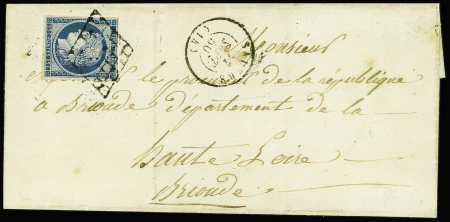 Monsieur
le procureur de la république
à Brioude département de la
haute Loire
Brioude